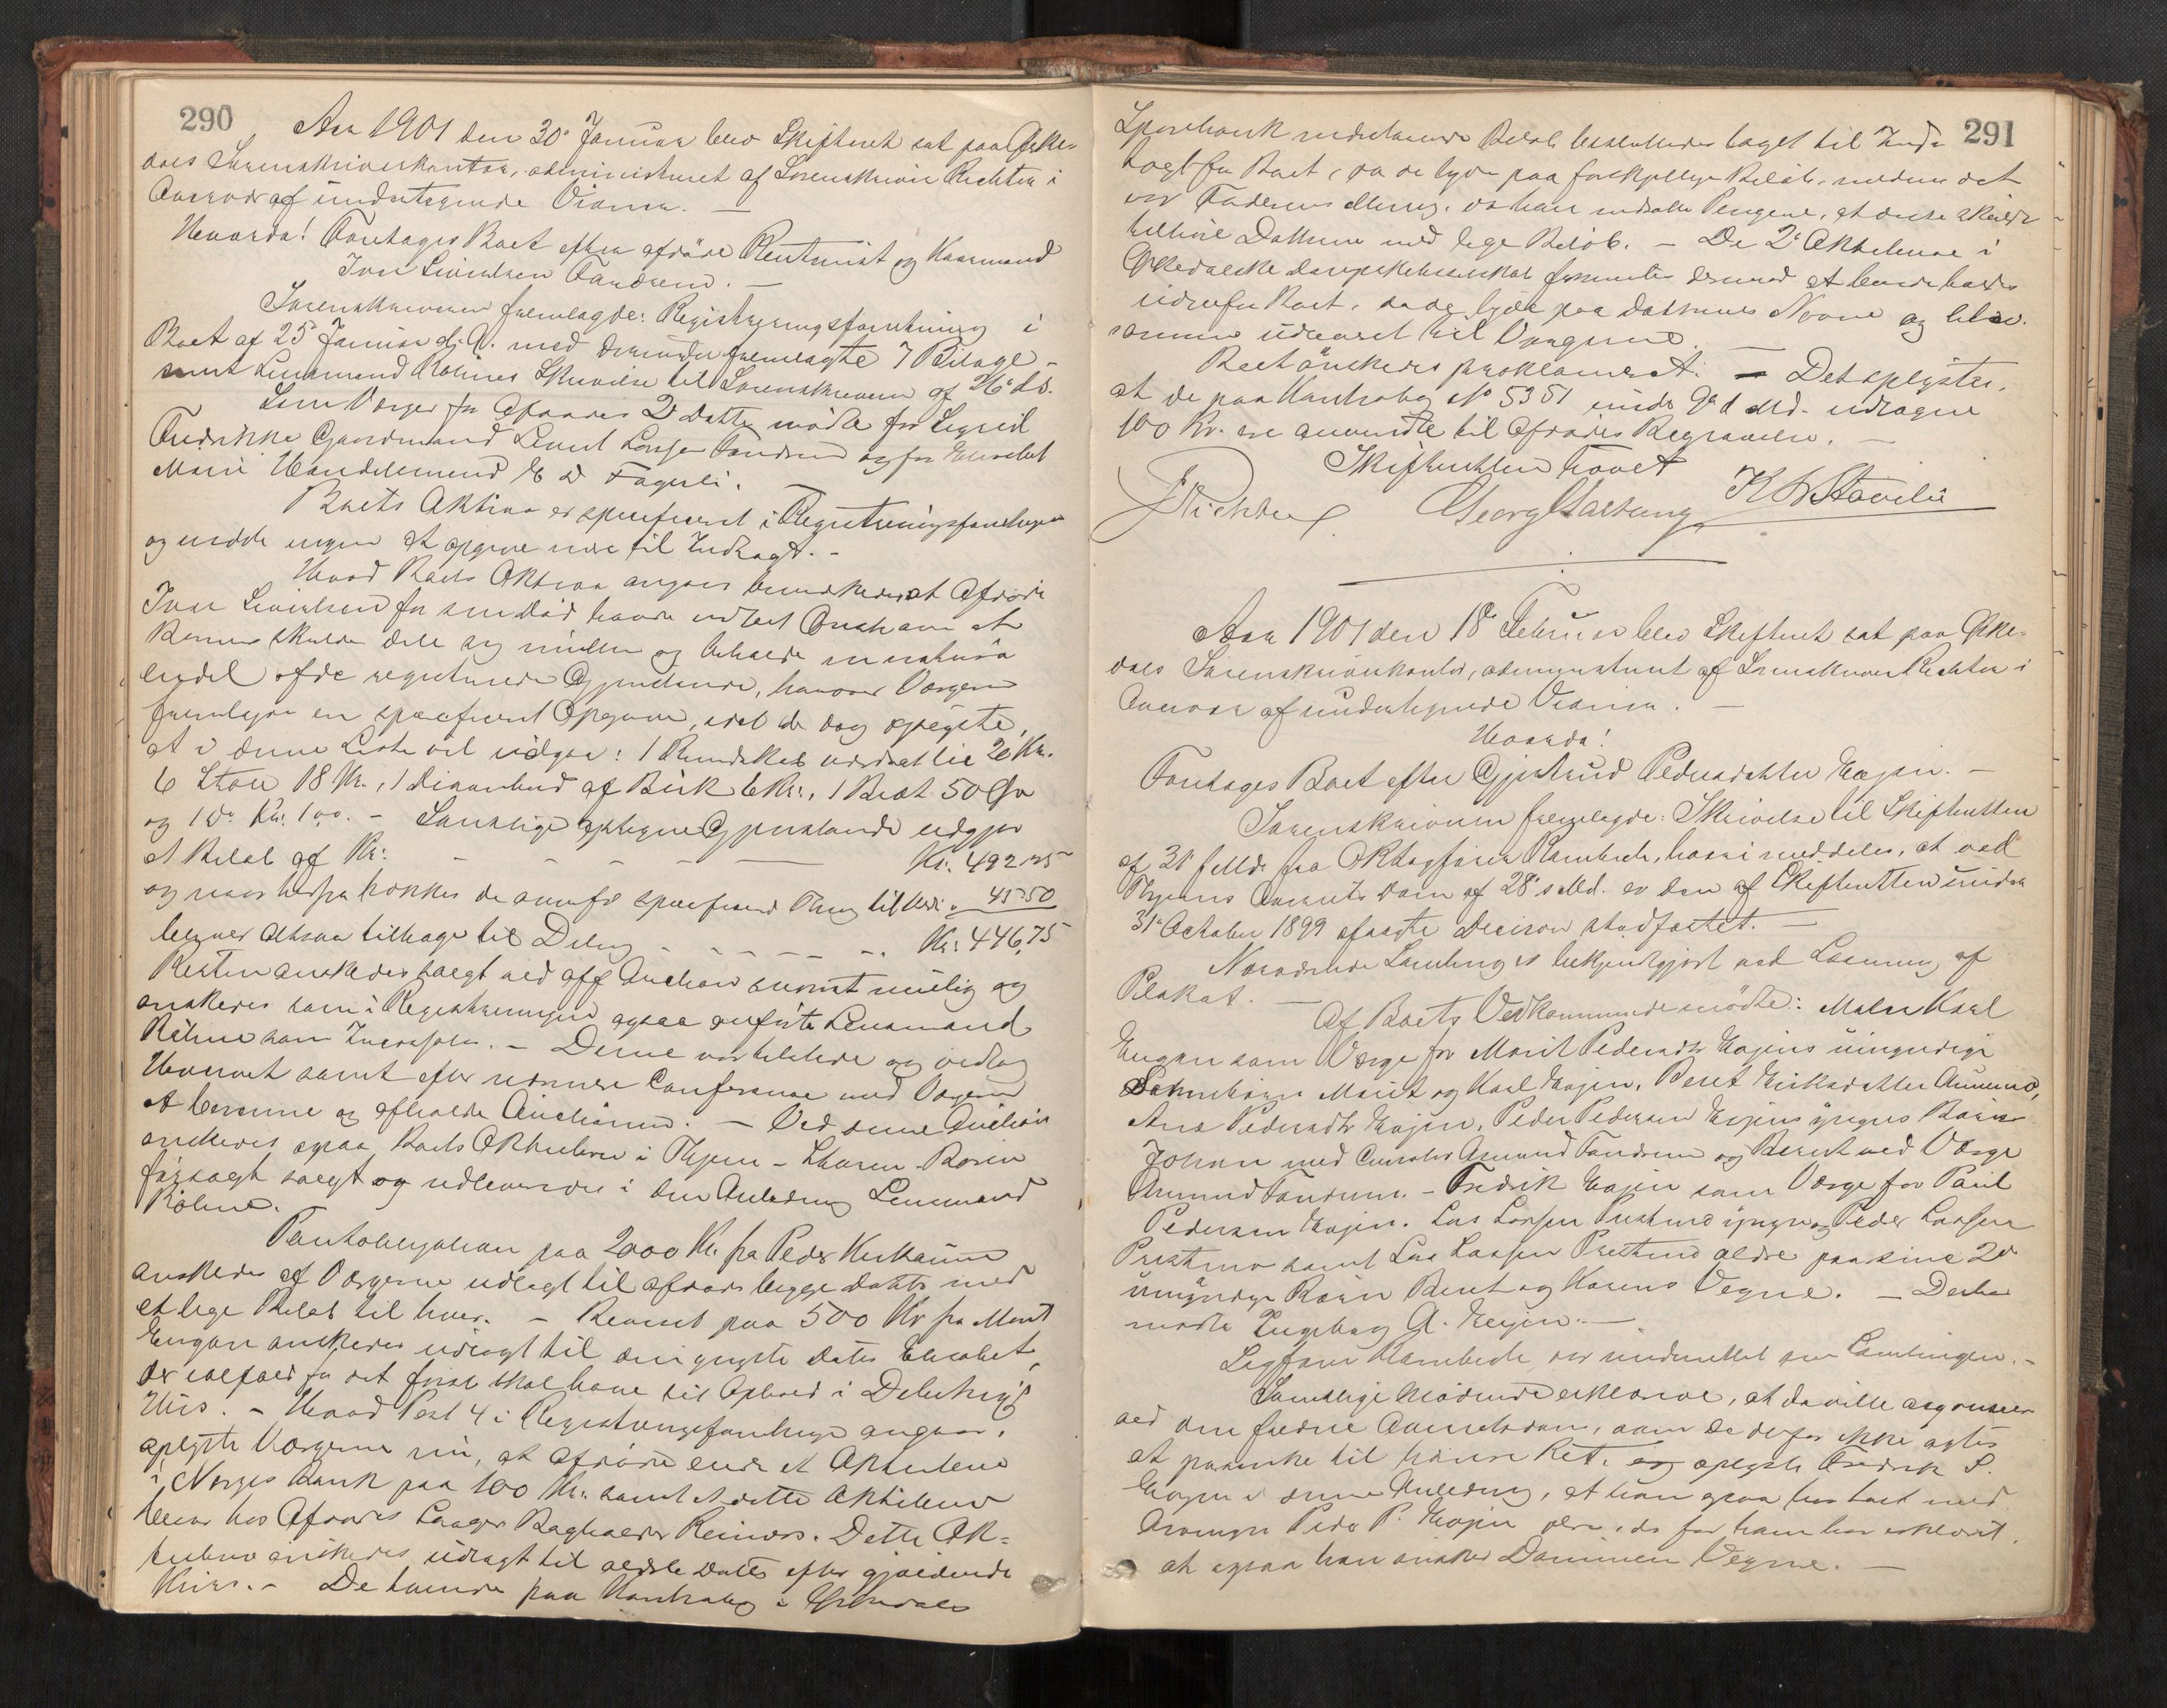 290
Aar 1901 den 30' Januar blev Skifteret sat paa Orke-
dals Sorenskriverkontor, administreret af Sorenskriver Richter i
Overvær af undertegnede Vidner. —
Hvorda! Foretages Boet efter afdøde Rentenist og Kaarmand
Iver Sivertsen Fandrem. —
Sorenskriveren fremlagde: Registreringsforretning i
Boet af 25 Januar d. A. med derunder fremlagte 7 Bilage -
samt Lensmand Rølmes Skrivelse til Sorenskriveren af 26' ds.
Som Værger for Afdødes 2de Døttre mødte for Sigrid
Fredrikke Gaardmand Sivert Larsen Fandrem og for Elisabet
Marie Handelsmand E D Fagerli.
Boets Aktiva er specificeret i Registreringsforretningen
og vidste ingen at opgive mere til Indtægt. -
Hvad Boets Aktiva angaar bemærkedes at Afdøde
Iver Sivertsen før sin Død havde udtalt Ønske om at
Børnene skulde dele sig imellem og beholde in natura
endel af de registrerede Gjenstande, hvorover Værgerne
fremlagde en specificeret Opgave, idet de dog oplyste,
at i denne Liste vil udgaa: 1 Rundskab værdsat til 20 Kr.
6 Stole 18 Kr., 1 Divanbord af Birk 6 Kr., 1 Bræt 50 Øre
og 1 Do. Kr. 1,00. - Samtlige optegnede Gjenstande udgjør
et Beløb af Kr: — — — Kr: 492,25
og naar herfra trækkes de ovenfor specificerede Ting til Værdi " 45.50
bliver altsaa tilbage til Deling - - - - Kr: 446,75
Resten ønskedes solgt ved off. Auction snarest mulig og
ønskedes som i Registreringen ogsaa anført Lensmand
Rølme som Incassator. - Denne var tilstede og vedtog
Hvervet samt efter nærmere Conference med Værgerne
at beramme og afholde Auctionen. - Ved denne Auction
ønskedes ogsaa Boets Aktiebrev i Thjem - Støren - Banen
forsøgt solgt og udleveredes i den Anledning Lensmand
Rølme.
Pantobligationen paa 2000 Kr. fra Peder Kirkaune
ønskedes af Værgerne udlagt til afdødes begge Døttre med
et lige Beløb til hver. - Beviset paa 500 Kr fra Marit
Engan ønskedes udlagt til den yngste Datter Elisabet,
der ialfald for det første skal have sit Ophold i Delvis
Hus. - Hvad Post 4 i Registreringsforretningen angaar,
oplyste Værgerne nu, at afdøde eiede et Aktiebrev
i Norges Bank paa 100 Kr. samt at dette Aktiebrev
beror hos Afdødes Laager Bagholder Reinaas. Dette Ak-
tiebrev ønskedes udlagt til ældste Datter efter gjældende
Kurs. - De tvende paa Kontrabog i Orkedals
291
Sparebank indestaaende Beløb besluttedes taget til Ind-
tægt for Boet, da de lyde paa forskjellige Beløb, medens det
var Faderens Mening, da han indsatte Pengene, at disse skulde
tilhøre Døttrene med lige Beløb. - De 2' Aktiebreve i
Orkedalske Dampskibsselskab forventes dermed at burde holdes
udenfor Boet, da de lyde paa Døttrenes Navne og blev
samme udleveret til Værgerne. —
Boet ønskedes proklameret. — Det oplystes,
at de paa Kontrabog No 5351 under 9de d. Md. udtagne
100 Kr. ere anvendte til Afdødes Begravelse. —
Skifteretten hævet
J Richter Georg Hartung K O Stavlie
Aar 1901 den 18' Februar blev Skifteret sat paa Orke-
dals Sorenskriverkontor, administreret af Sorenskriver Richter i
Overvær af undertegnede Vidner. —
Hvorda!
Foretages Boet efter Gjertrud Pedersdatter Eggen. —
Sorenskriveren fremlagde: Skrivelse til Skifteretten
af 31' f. Md. fra Oktogfører Rambech, hvori meddeles, at ved
Throndhjems Overrets Dom af 28' s. Md. er den af Skifteretten under
31' October 1899 afsagte Decision stadfæstet. —
Nærværende Samling er bekjendtgjort ved Læsning af
Plakat. —
Af Boets Vedkommende mødte: Maler Karl
Engan som Værge for Marit Pedersdtr Eggens umyndige
Børn Marit og Karl Eggen, Beret Eriksdatter Aunemo,
Ane Pedersdtr Eggen, Peder Pedersen Eggens yngres Børn
Johan med Curator Amund Fandrem og Berit ved Værge
Amund Fandrem. - Fredrik Eggen som Værge for Paul
Pedersen Eggen. Lars Larsen Prestmo yngre og Peder Larsen
Prestmo samt Lars Larsen Prestmo ældre paa sine 2de
umyndige Børn Berit og Karens Vegne. - Derhos
mødte Ingeborg A. Eggen. —
Sagfører Rambech var underrettet om Samlingen. -
Samtlige Mødende erklærede, at de ville acquiescere
ved den faldne Overretsdom, som de derfor ikke agter
at paaanke til høiere Ret. og oplyste Fredrik P.
Eggen i denne Anledning, at han ogsaa har talt med
Arvingen Peder P. Eggen ældre, der for ham har erklæret,
at ogsaa han ønsker Dommen Vegne. —